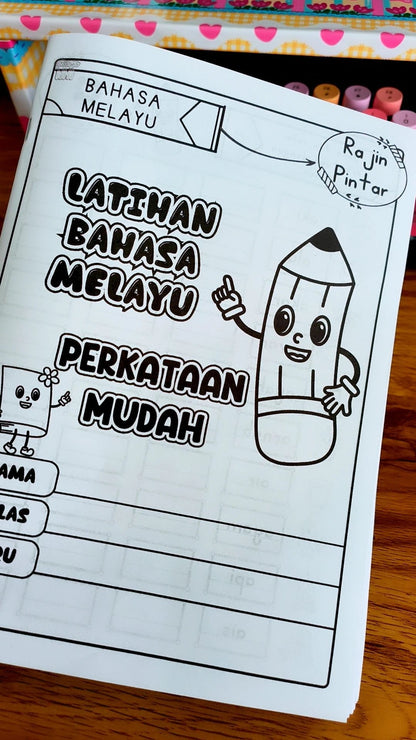 BAHASA
MELAYU
Rajin
Pintar
LATIHAN
BAHASA
MELAYU
PERKATAAN
MUDAH
AMA
LAS